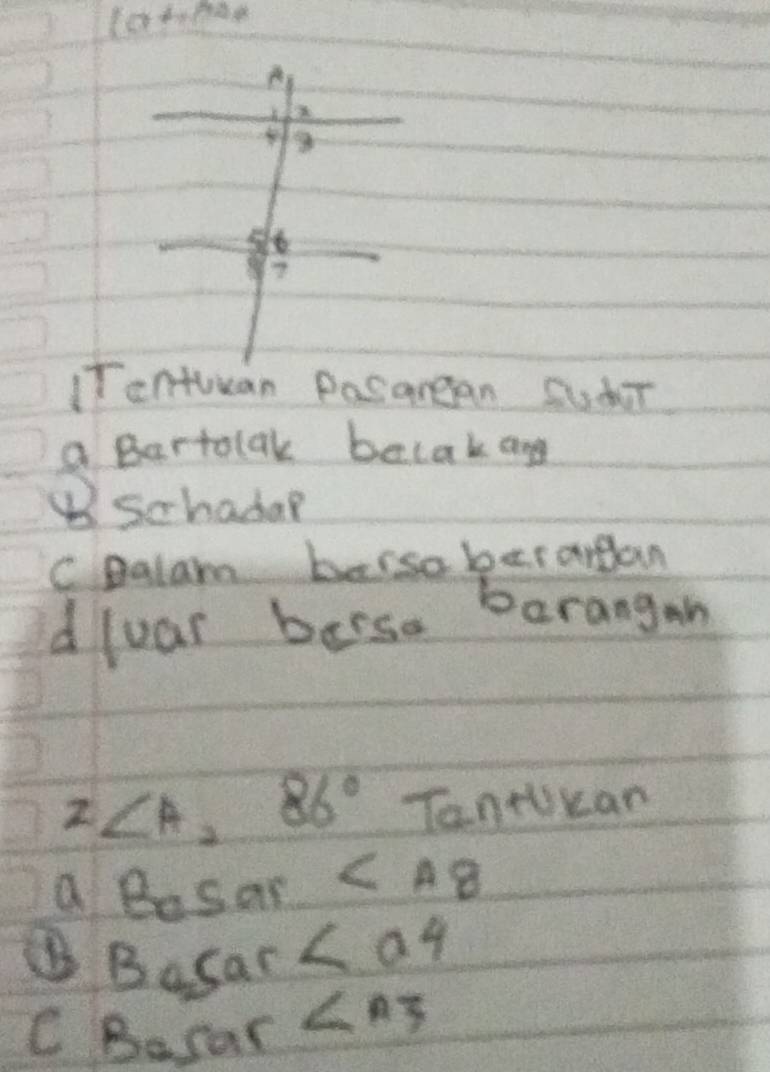 Latihan
A
1 2
4 3
5 6
8 7
1 Tentukan Pasangan Sudut
a Bartolak belakang
B Sehadap
C Dalam berseberangan
d luar berse barangan
2 <A2 86° Tantukan
a Besar < A8
B Basar < a4
C Besar < A3